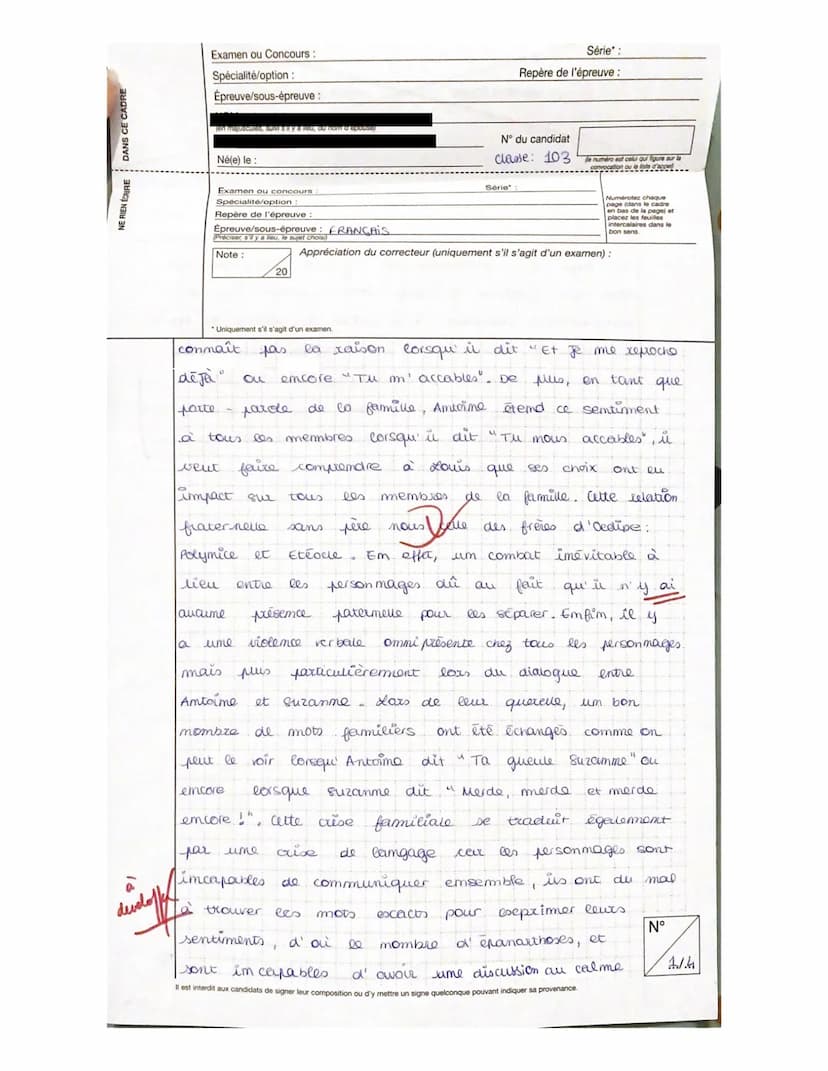 Examen ou Concours :
Série* :
Spécialité/option :
Repère de l'épreuve :
Épreuve/sous-épreuve :
(en majuscules, suivi s'il y a lieu, du nom d'épouse)
N° du candidat
Né(e) le :
classe : 103
(le numéro est celui qui figure sur la
convocation ou la liste d'appel)
DANS CE CADRE
NE RIEN ÉCRIRE
Examen ou concours :
Série* :
Spécialité/option :
Repère de l'épreuve :
Épreuve/sous-épreuve : FRANÇAIS
(Préciser, s'il y a lieu, le sujet choisi)
Numérotez chaque
page (dans le cadre
en bas de la page) et
placez les feuilles
intercalaires dans le
bon sens.
Note :
20
Appréciation du correcteur (uniquement s'il s'agit d'un examen) :
* Uniquement s'il s'agit d'un examen.
connaît pas la raison lorsqu'il dit "Et je me reproche
déjà" ou encore "Tu m'accables". De plus, en tant que
porte-parole de la famille, Antoine étend ce sentiment
à tous les membres lorsqu'il dit "Tu nous accables", il
veut faire comprendre à Louis que ses choix ont eu
impact sur tous les membres de la famille. Cette relation
fraternelle sans père nous celle des frères d'Oedipe :
Polynice et Etéocle. En effet, un combat inévitable à
lieu entre les personnages dû au fait qu'il n'y ai
aucune présence paternelle pour les séparer. Enfin, il y
a une violence verbale omniprésente chez tous les personnages
mais plus particulièrement lors du dialogue entre
Antoine et Suzanne. Lors de leur querelle, un bon
nombre de mots familiers ont été échangés comme on
peut le voir lorsqu'Antoine dit "Ta gueule Suzanne" ou
encore lorsque Suzanne dit "Merde, merde et merde
encore !". Cette crise familiale se traduit également
par une crise de langage car les personnages sont
incapables de communiquer ensemble, ils ont du mal
à trouver les mots exacts pour exprimer leurs
sentiments, d'où le nombre d'épanorthoses, et
sont incapables d'avoir une discussion au calme
à
développer
N°
Il est interdit aux candidats de signer leur composition ou d'y mettre un signe quelconque pouvant indiquer sa provenance.